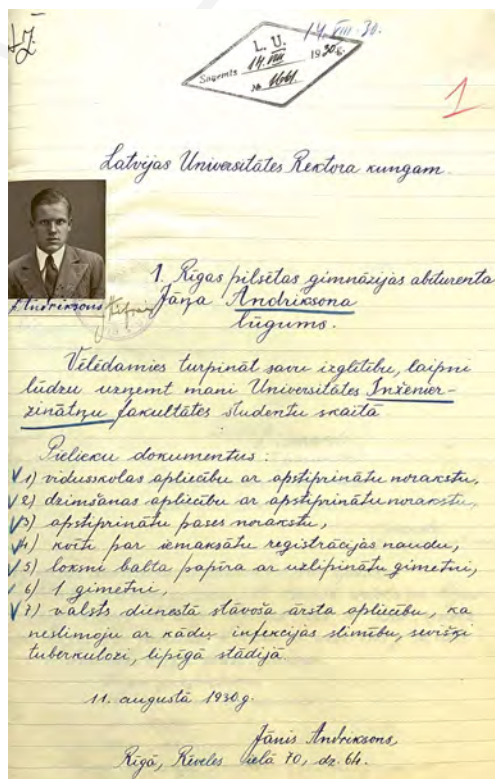 14. VIII. 30.
L. U.
Saņemts 14. VIII 1930 g.
№
1
Latvijas Universitātes Rektora kungam.
1. Rīgas pilsētas gimnāzijas abiturienta
Jāņa Andriksona
lūgums.
Andriksons
Vēlēdamies turpināt savu izglītību, laipni
lūdzu uzņemt mani Universitātes Inženier-
zinātņu fakultātes studentu skaitā
Pielieku dokumentus:
1) vidusskolas apliecību ar apstiprinātu norakstu,
2) dzimšanas apliecību ar apstiprinātu norakstu,
3) apstiprinātu pases norakstu,
4) kvīti par iemaksātu reģistrācijas naudu,
5) loksni balta papīra ar uzlipinātu ģimetni,
6) 1 ģimetni,
7) valsts dienestā stāvoša ārsta apliecību, ka
neslimoju ar kādu infekcijas slimību, sevišķi
tuberkulozi, lipīgā stādijā.
11. augustā 1930.g.
Jānis Andriksons,
Rīgā, Rēveles ielā 70, dz. 64.